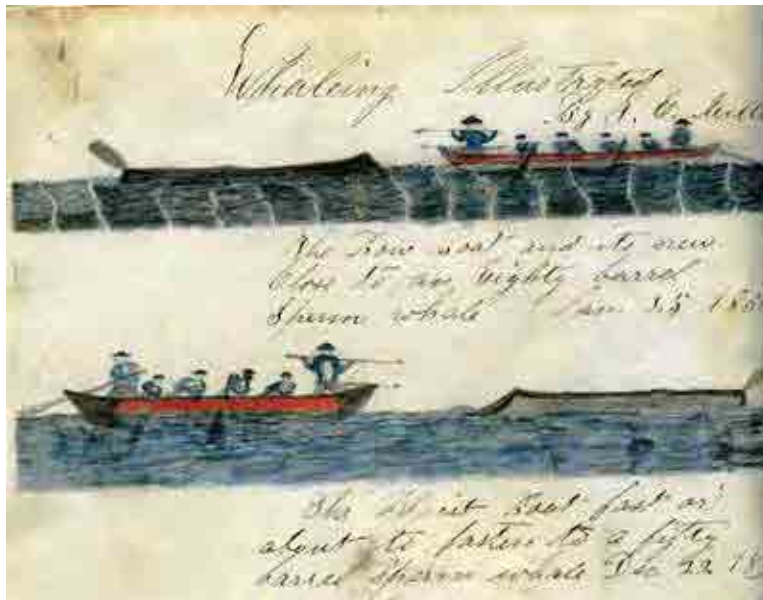 Whaleing Illustrated
By
The Bow boat and its crew
Close to an Eighty barrel
Sperm whale Jan 25 18
The boat fast or
about to fasten to a fifty
barrel Sperm whale Dec 22 18